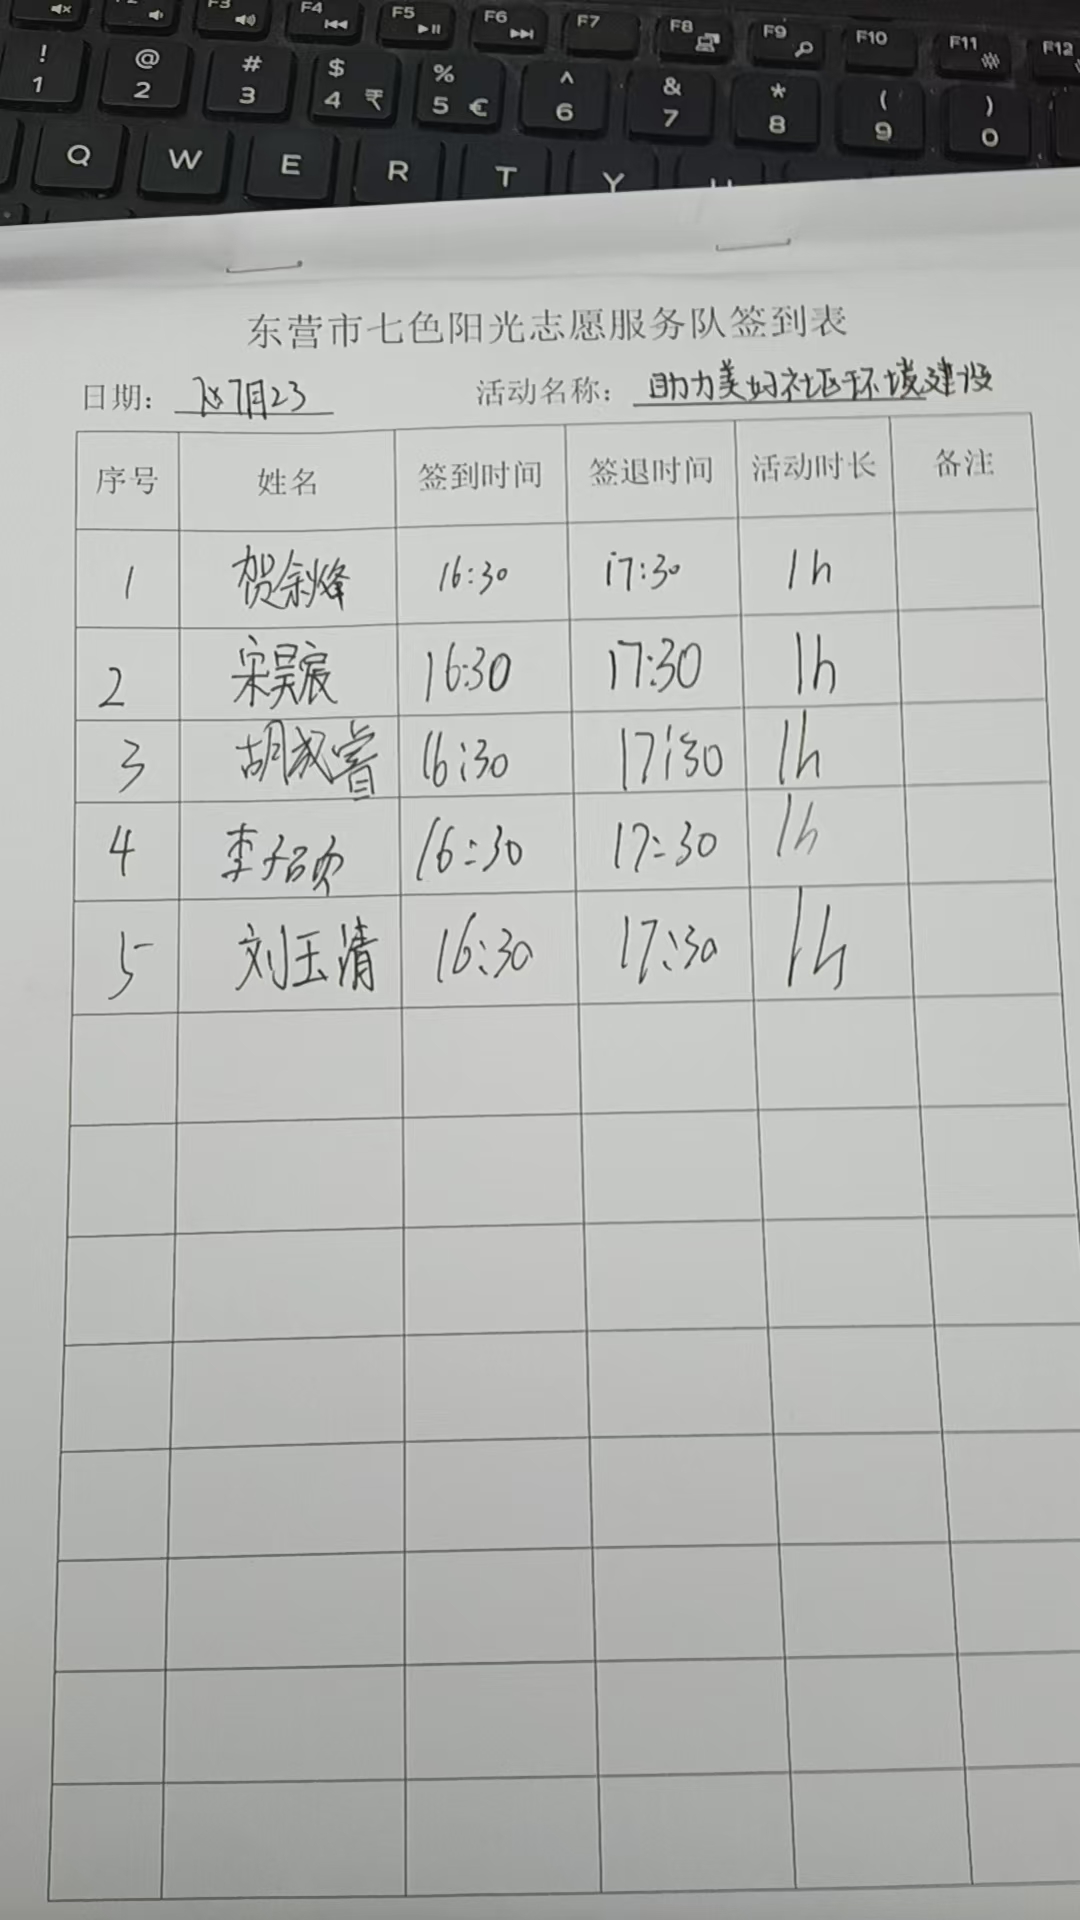 F4 F5 F6 F7 F8 F9 F10 F11 F12
! @ # $ % ^ & * ( )
1 2 3 4 ₹ 5 € 6 7 8 9 0
Q W E R T Y
东营市七色阳光志愿服务队签到表
日期: 7月23 活动名称: 助力美好社区环境建设
序号 姓名 签到时间 签退时间 活动时长 备注
1 贺余烽 16:30 17:30 1h
2 宋昊宸 16:30 17:30 1h
3 胡 睿 16:30 17:30 1h
4 李 16:30 17:30 1h
5 刘玉清 16:30 17:30 1h